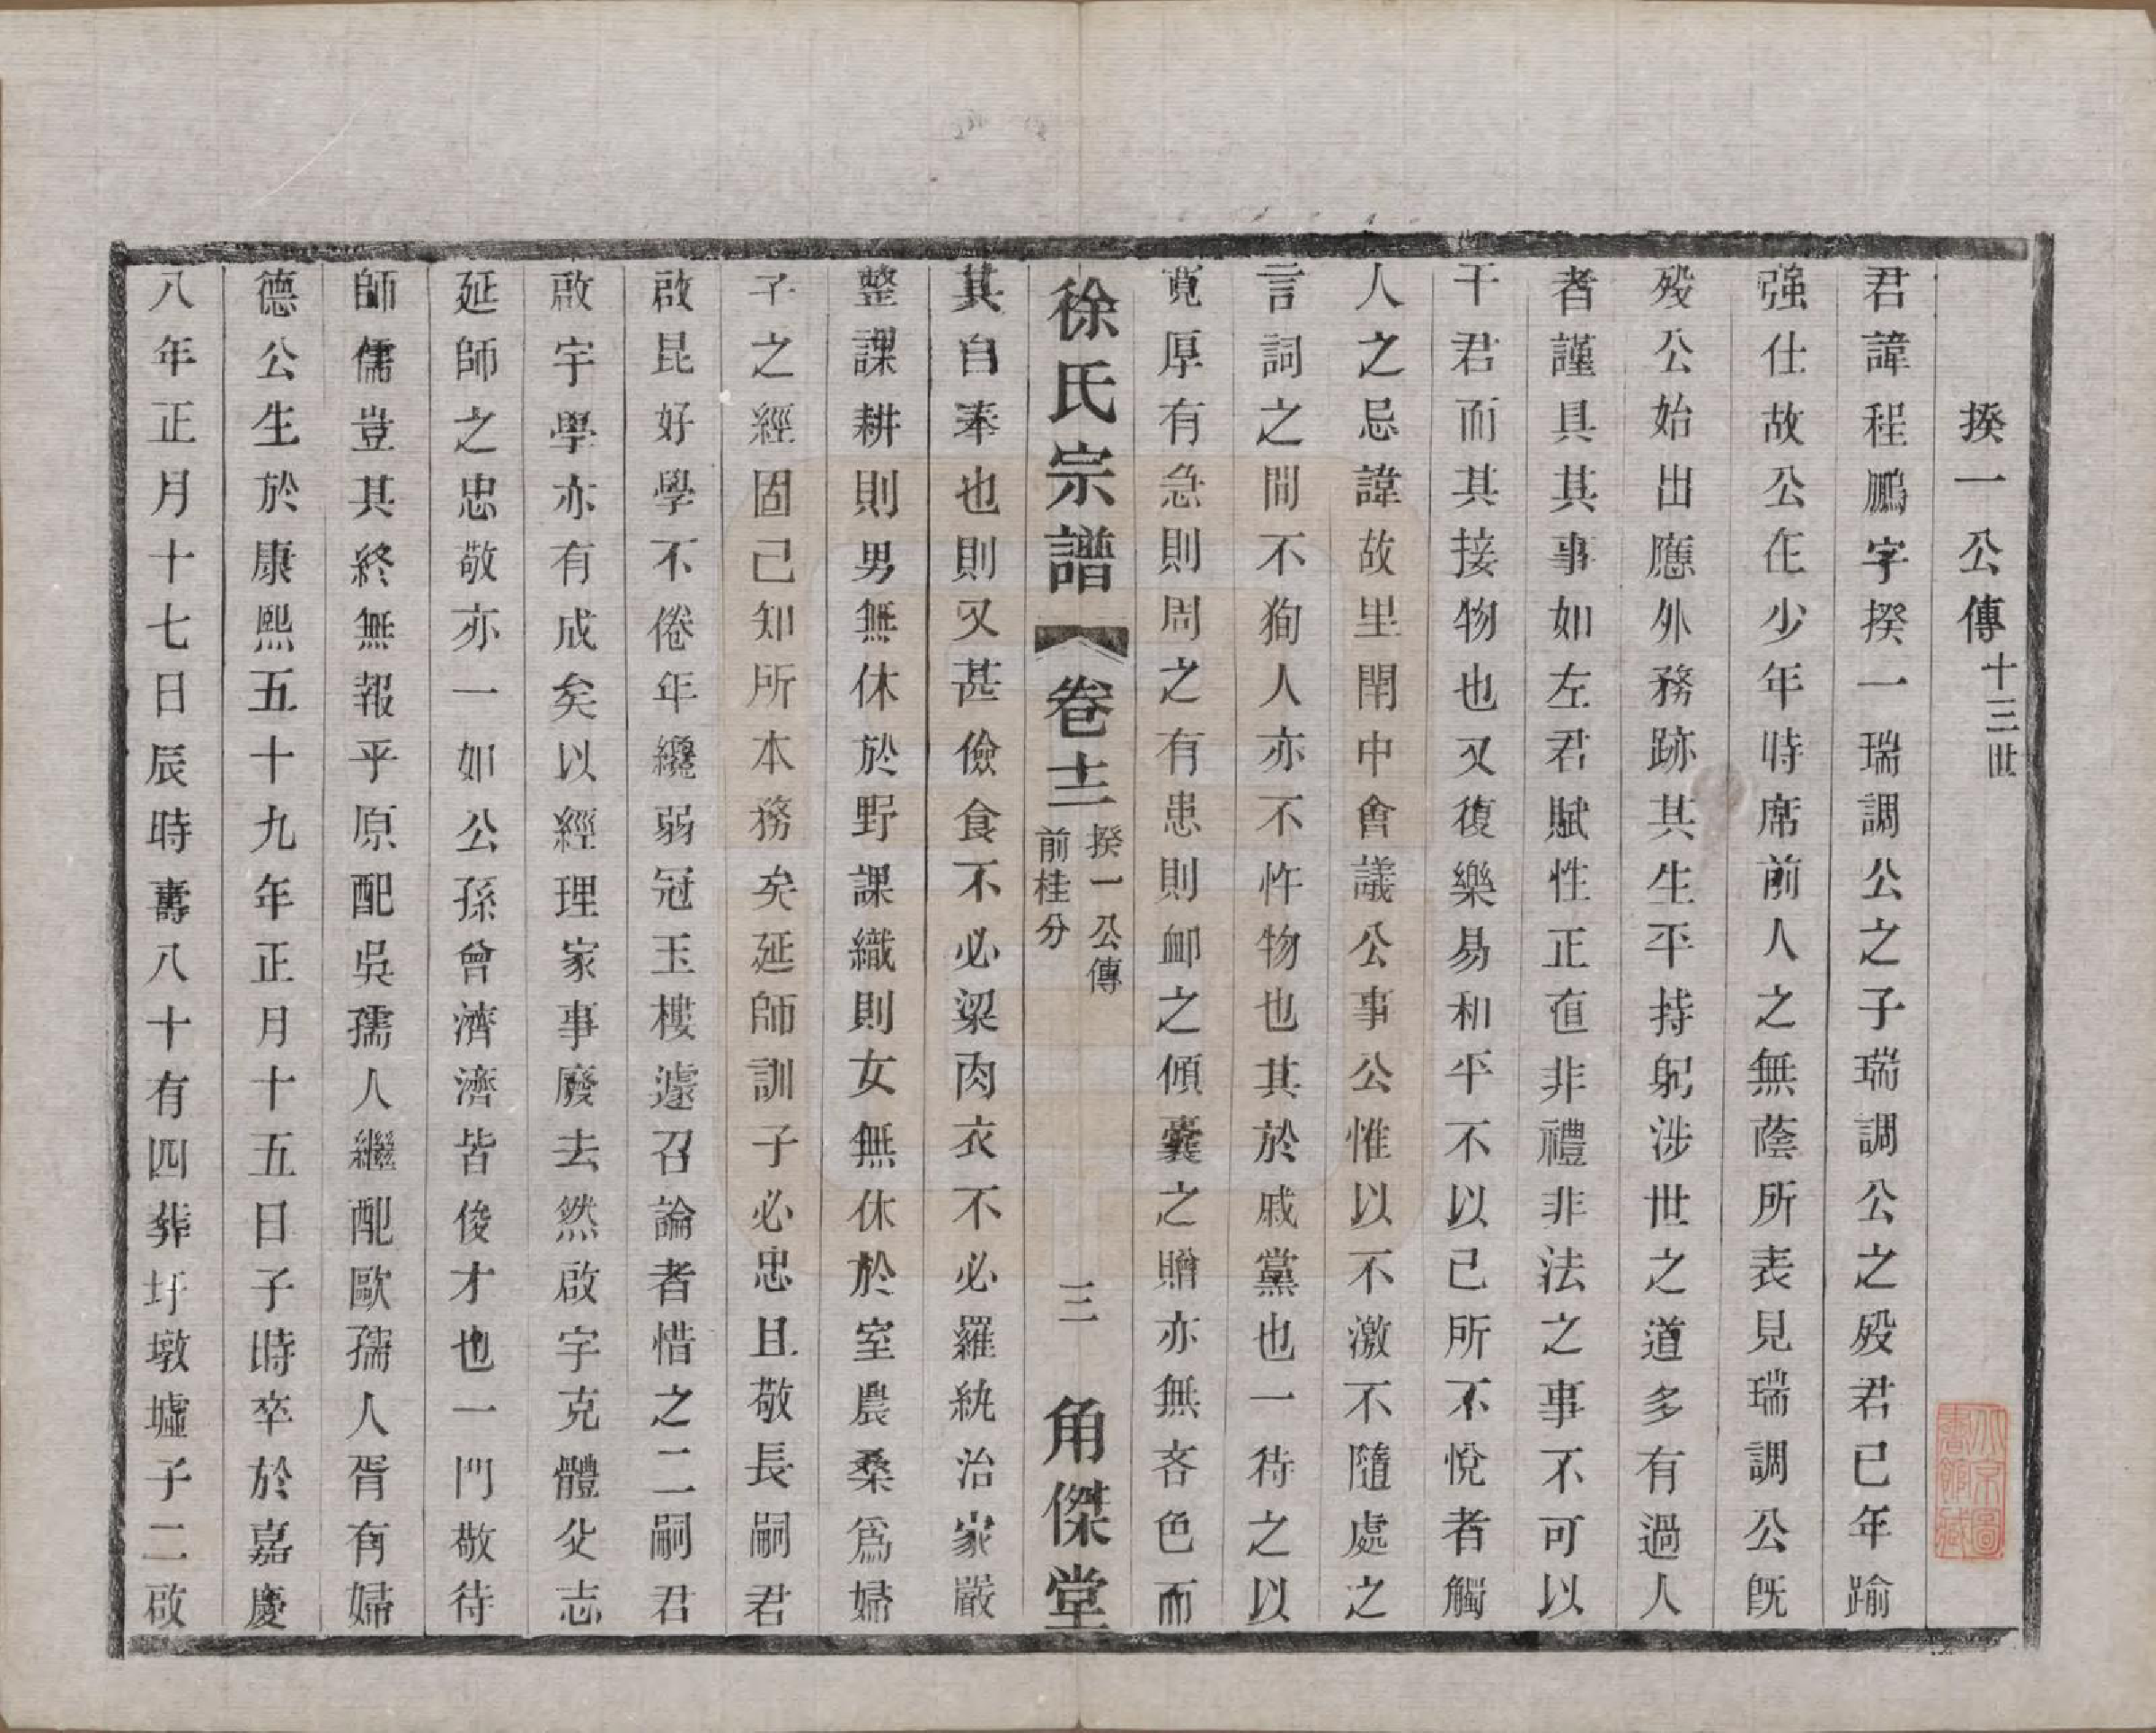 揆一公傳十三世
君諱程鵬字揆一瑞調公之子瑞調公之殁君已年踰
强仕故公在少年時席前人之無蔭所表見瑞調公旣
殁公始出應外務跡其生平持躬涉世之道多有過人
者謹具其事如左君賦性正直非禮非法之事不可以
干君而其接物也又復樂易和平不以已所不悅者觸
人之忌諱故里閈中會議公事公惟以不激不隨處之
言詞之間不狥人亦不忤物也其於戚黨也一待之以
寬厚有急則周之有患則卹之傾囊之贈亦無吝色而
徐氏宗譜 卷十三 揆一公傳 前桂分 三 角傑堂
其自奉也則又甚儉食不必粱肉衣不必羅紈治家嚴
整課耕則男無休於野課織則女無休於室農桑爲婦
子之經固已知所本務矣延師訓子必忠且敬長嗣君
啟昆好學不倦年纔弱冠玉樓遽召論者惜之二嗣君
啟宇學亦有成矣以經理家事廢去然啟宇克體父志
延師之忠敬亦一如公孫曾濟濟皆俊才也一門敬待
師儒豈其終無報乎原配吳孺人繼配歐孺人胥有婦
德公生於康熙五十九年正月十五日子時卒於嘉慶
八年正月十七日辰時壽八十有四葬圩墩墟子二啟